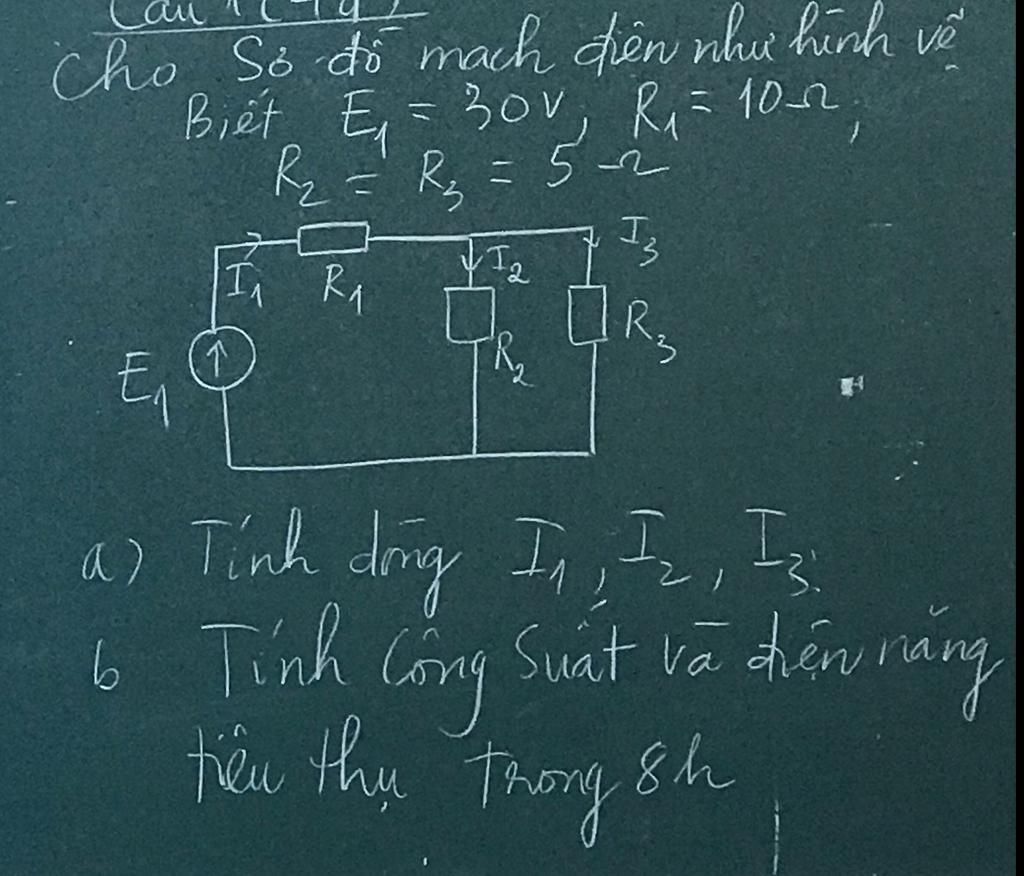 Câu 1 (
Cho Sơ đồ mạch điện như hình vẽ
Biết E₁ = 30V, R₁ = 10Ω;
R₂ = R₃ = 5 Ω
I₁ R₁ I₂ I₃
E₁ R₂ R₃
a) Tính dòng I₁, I₂, I₃.
b Tính Công Suất và điện năng
tiêu thụ Trong 8h